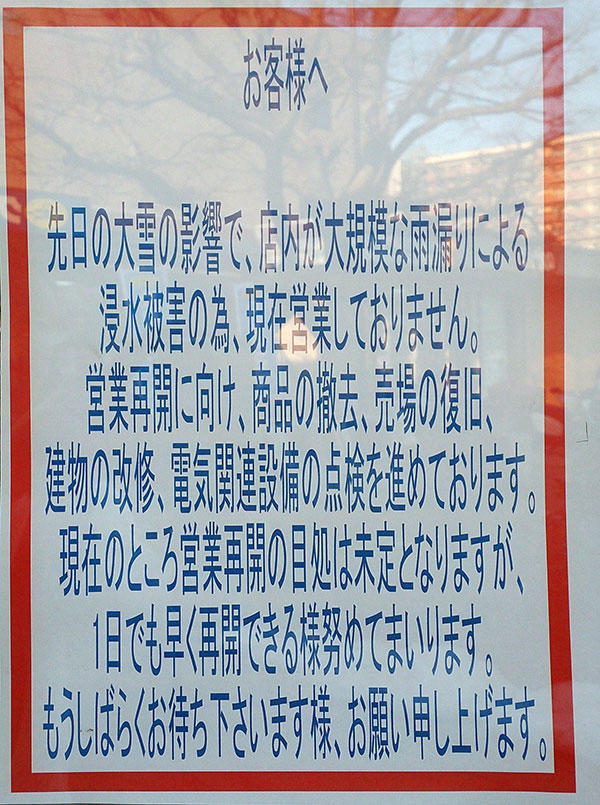 お客様へ
先日の大雪の影響で、店内が大規模な雨漏りによる
浸水被害の為、現在営業しておりません。
営業再開に向け、商品の撤去、売場の復旧、
建物の改修、電気関連設備の点検を進めております。
現在のところ営業再開の目処は未定となりますが、
1日でも早く再開できる様努めてまいります。
もうしばらくお待ち下さいます様、お願い申し上げます。